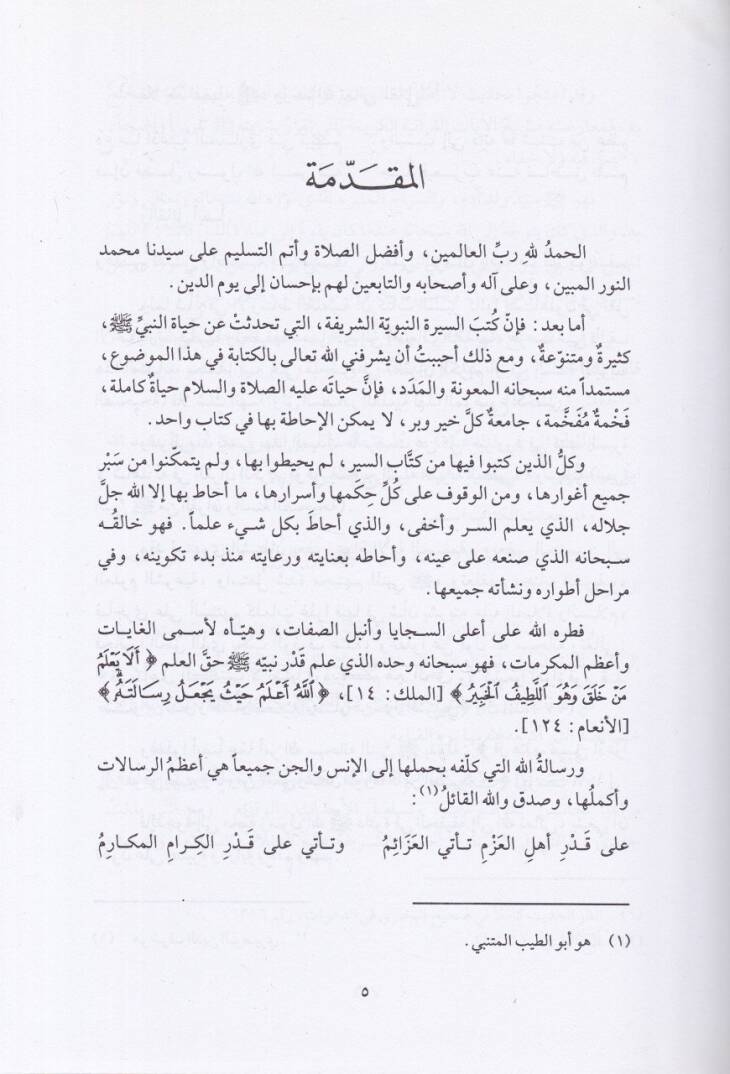 المقدّمَة
الحمدُ للهِ ربِّ العالمين، وأفضل الصلاة وأتم التسليم على سيدنا محمد
النور المبين، وعلى آله وأصحابه والتابعين لهم بإحسان إلى يوم الدين.
أما بعد: فإنّ كُتبَ السيرة النبويّة الشريفة، التي تحدثتْ عن حياة النبيِّ ﷺ،
كثيرةٌ ومتنوّعةٌ، ومع ذلك أحببتُ أن يشرفني الله تعالى بالكتابة في هذا الموضوع،
مستمداً منه سبحانه المعونة والمَدَد، فإنَّ حياتَه عليه الصلاة والسلام حياةٌ كاملة،
فَخْمةٌ مُفَخَّمة، جامعةٌ كلَّ خير وبر، لا يمكن الإحاطة بها في كتاب واحد.
وكلُّ الذين كتبوا فيها من كتَّاب السير، لم يحيطوا بها، ولم يتمكّنوا من سَبْر
جميع أغوارها، ومن الوقوف على كُلِّ حِكَمها وأسرارها، ما أحاط بها إلا الله جلَّ
جلاله، الذي يعلم السر وأخفى، والذي أحاطَ بكل شيء علماً. فهو خالقُه
سبحانه الذي صنعه على عينه، وأحاطه بعنايته ورعايته منذ بدء تكوينه، وفي
مراحل أطواره ونشأته جميعها.
فطره الله على أعلى السجايا وأنبل الصفات، وهيّأه لأسمى الغايات
وأعظم المكرمات، فهو سبحانه وحده الذي علم قَدْر نبيّه ﷺ حقَّ العلم ﴿ أَلَا يَعْلَمُ
مَنْ خَلَقَ وَهُوَ اللَّطِيفُ الْخَبِيرُ ﴾ [الملك: ١٤]، ﴿ اللَّهُ أَعْلَمُ حَيْثُ يَجْعَلُ رِسَالَتَهُ ﴾
[الأنعام: ١٢٤].
ورسالةُ الله التي كلّفه بحملها إلى الإنس والجن جميعاً هي أعظمُ الرسالات
وأكملُها، وصدق والله القائلُ(١):
على قَدْرِ أهلِ العَزْمِ تـأتي العَزَائِمُ وتـأتي على قَدْرِ الكِرامِ المكـارِمُ
(١) هو أبو الطيب المتنبي.
٥